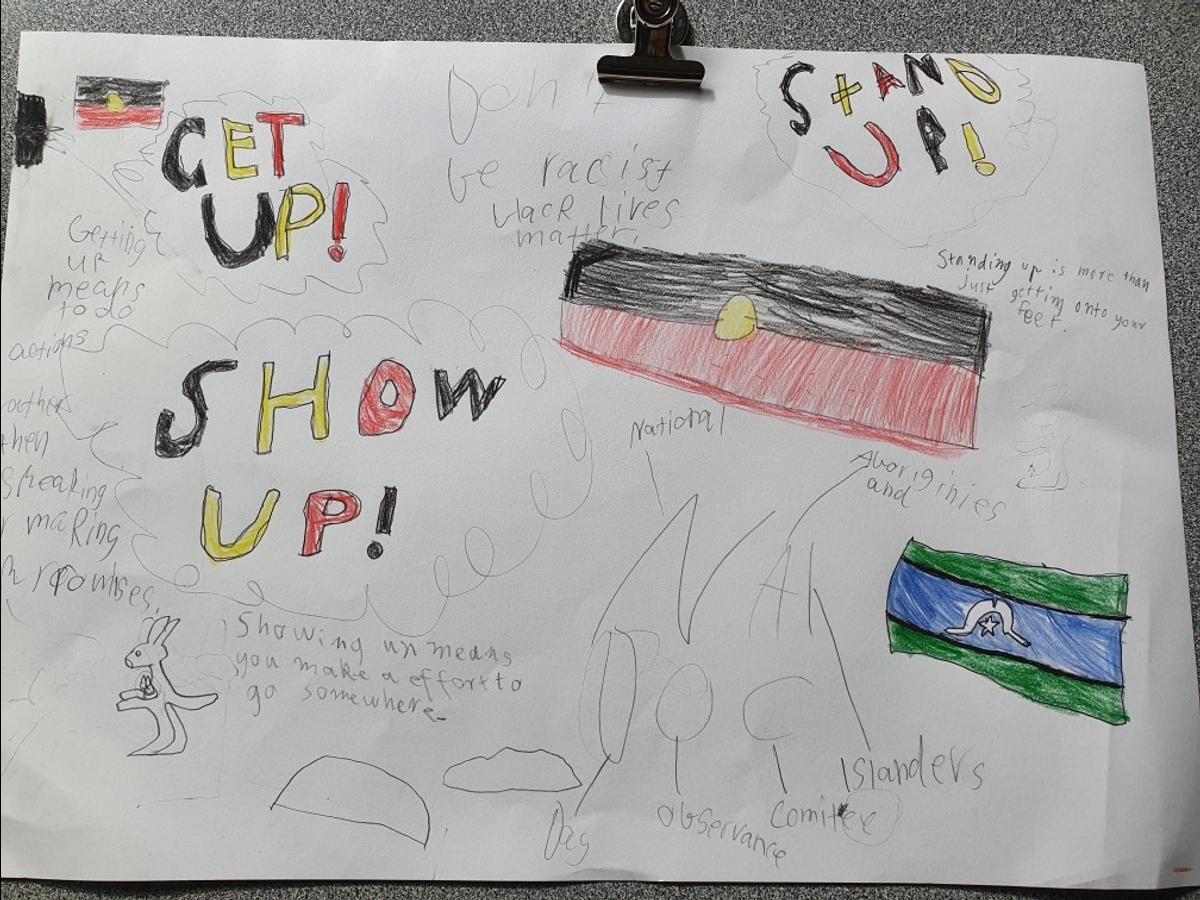 GET
UP!
Don't
be racist
black lives
matter.
STAND
UP!
Getting
up
means
to do
actions
others
then
Speaking
making
Standing up is more than
just getting onto your
feet.
SHOW
UP!
National
Aboriginies
and
NAI
DOC
Showing up means
you make a effort to
go somewhere.
Islanders
Day
observance
comitee